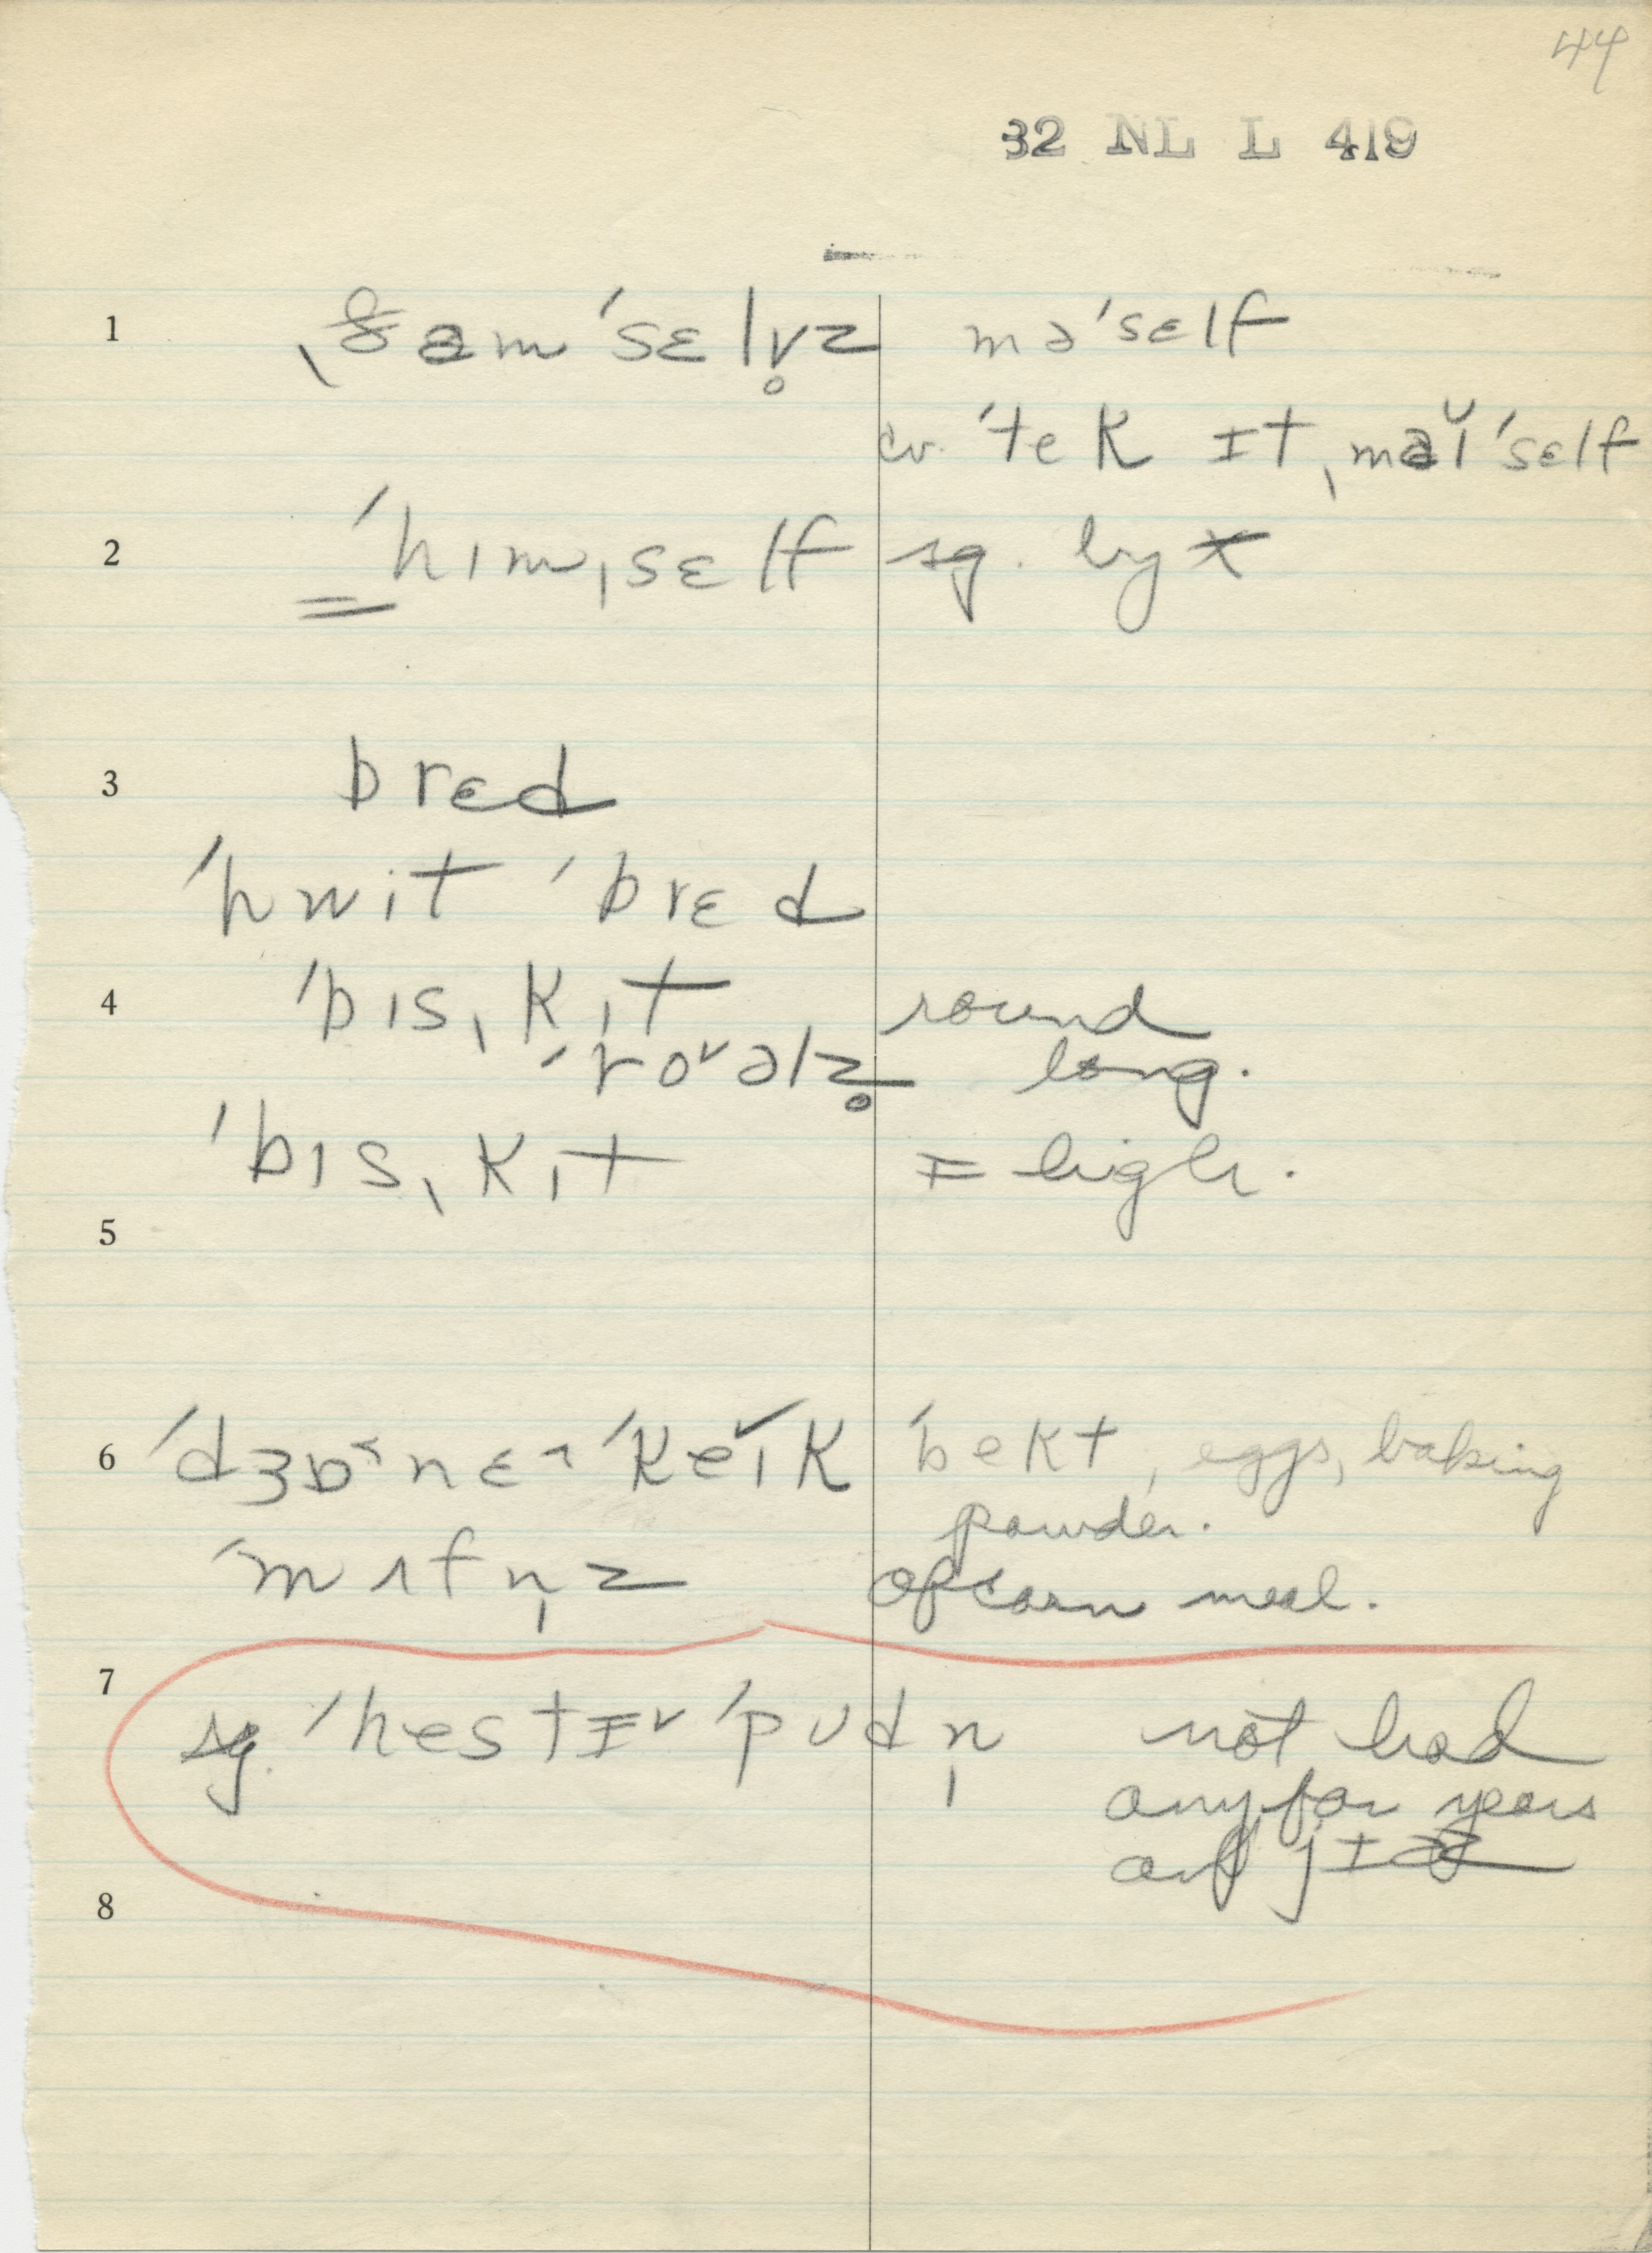 44
32 NL L 419
1 ˌðəmˈsɛlv̥z məˈsɛlf
cv. ˈtek ɪt ˌmaɪ̆ˈsɛlf
2 ˈhɪmˌsɛlf sg. by
3 brɛd
ˈhwit ˈbrɛd
4 ˈbɪsˌkɪt round
ˈroᵛəlz̥ long.
ˈbɪsˌkɪt = high.
5
6 ˈdʒɒ˂nɛ˄ ˈkeɪ̆k ˈbekt, eggs, baking
powder.
ˈmʌfn̩z of corn meal.
7 sg. ˈhestɪᵛ ˈpʊdn̩ not had
any for years
8